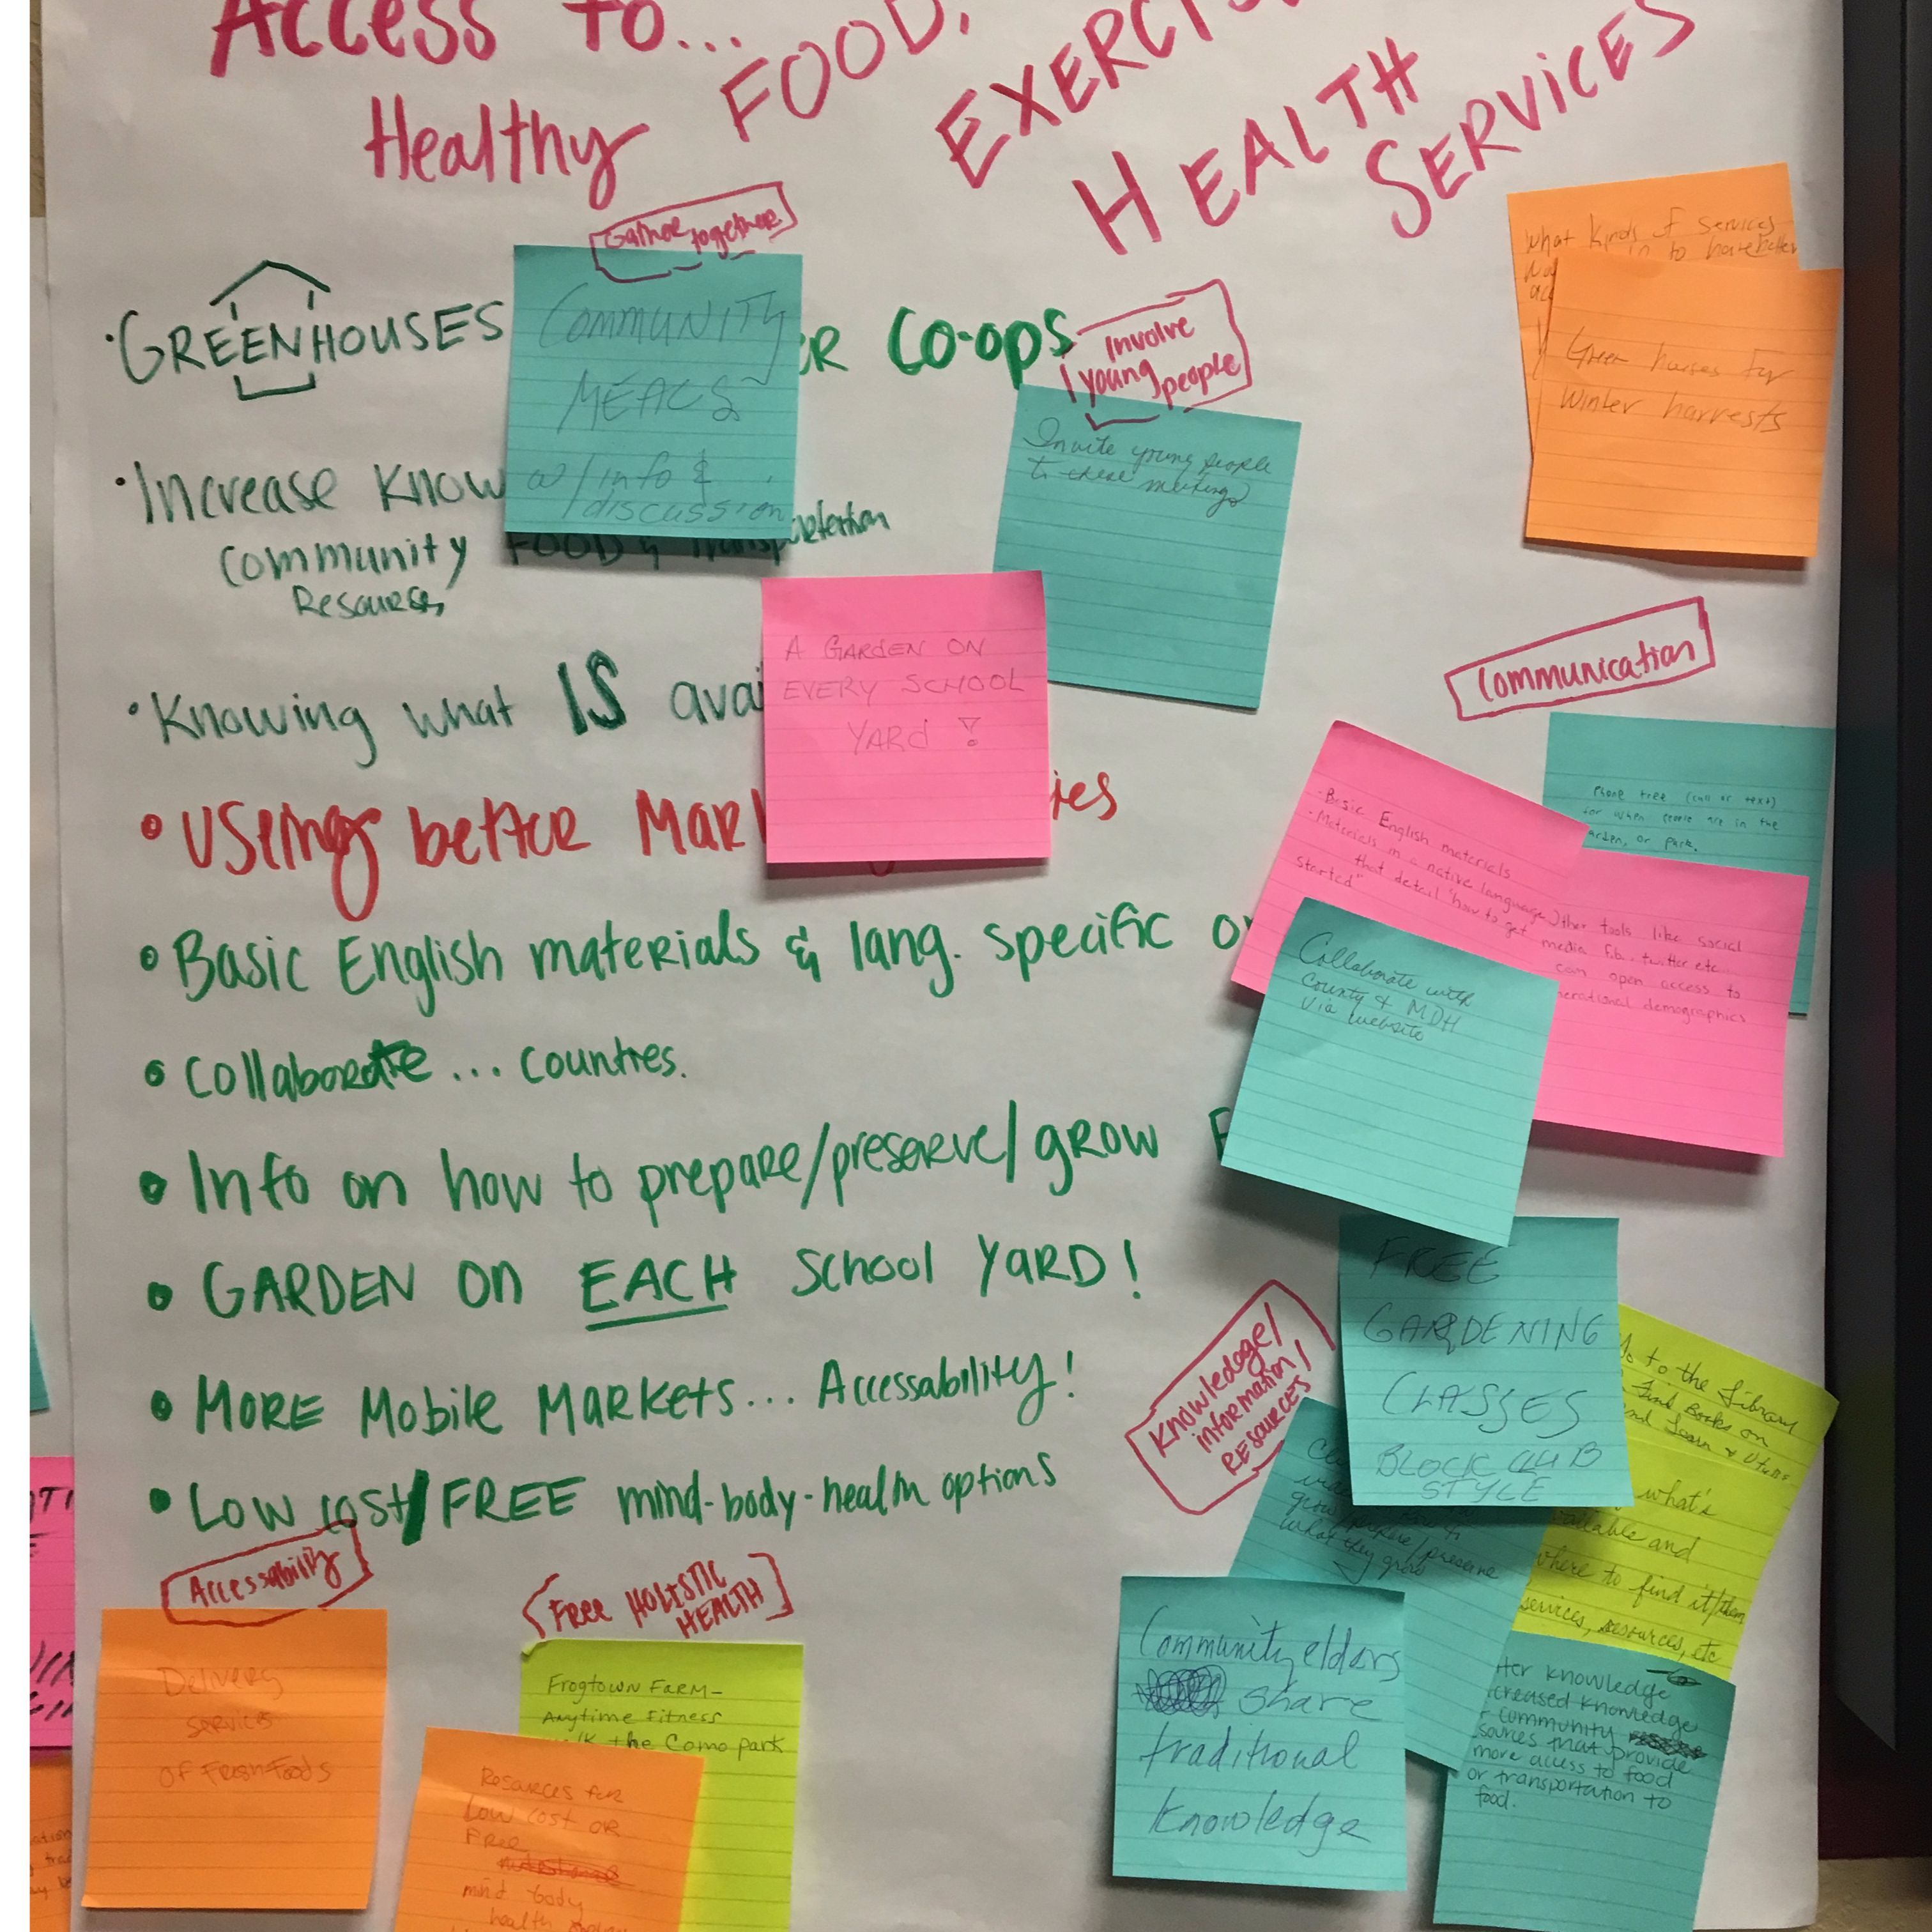 Access to...
Healthy FOOD,
EXERCIS
HEALTH
SERVICES
Gather together
COMMUNITY
MEALS
w/ info &
discussion
• GREENHOUSES
ER Co-ops
Involve
young people
Invite young people
to these meetings
What kinds of services
to have better
Green houses for
winter harvests
• Increase Know
Community FOOD & Transportation
Resources
A GARDEN ON
EVERY SCHOOL
YARD !
• Knowing what IS avai
• Using better Mar
ies
Communication
Phone tree (call or text)
for when people are in the
garden, or park.
- Basic English materials
- Materials in a native language
that detail "how to get
started"
Other tools like social
media f.b., twitter etc...
can open access to
nerational demographics
Collaborate with
County & MDH
via website
• Basic English materials & lang. specific o
• Collaborate ... Counties.
• Info on how to prepare/preserve/grow F
• GARDEN ON EACH School YARD!
• MORE Mobile MARKETS... Accessability!
• Low cost/FREE mind-body-health options
Knowledge/
information/
RESOURCES
FREE
GARDENING
CLASSES
BLOCK CLUB
STYLE
Go to the Library
Find Books on
and Learn & Utilize
what's
available and
where to find it/them
services, resources, etc
grow
preserve
what they grow
Community elders
share
traditional
knowledge
ter knowledge
creased knowledge
f community
sources that provide
more access to food
or transportation to
food.
Accessability
Delivery
services
of Fresh Foods
Free HOLISTIC
HEALTH
Frogtown Farm-
Anytime Fitness
the Como park
Resources for
Low cost or
Free
mind body
health